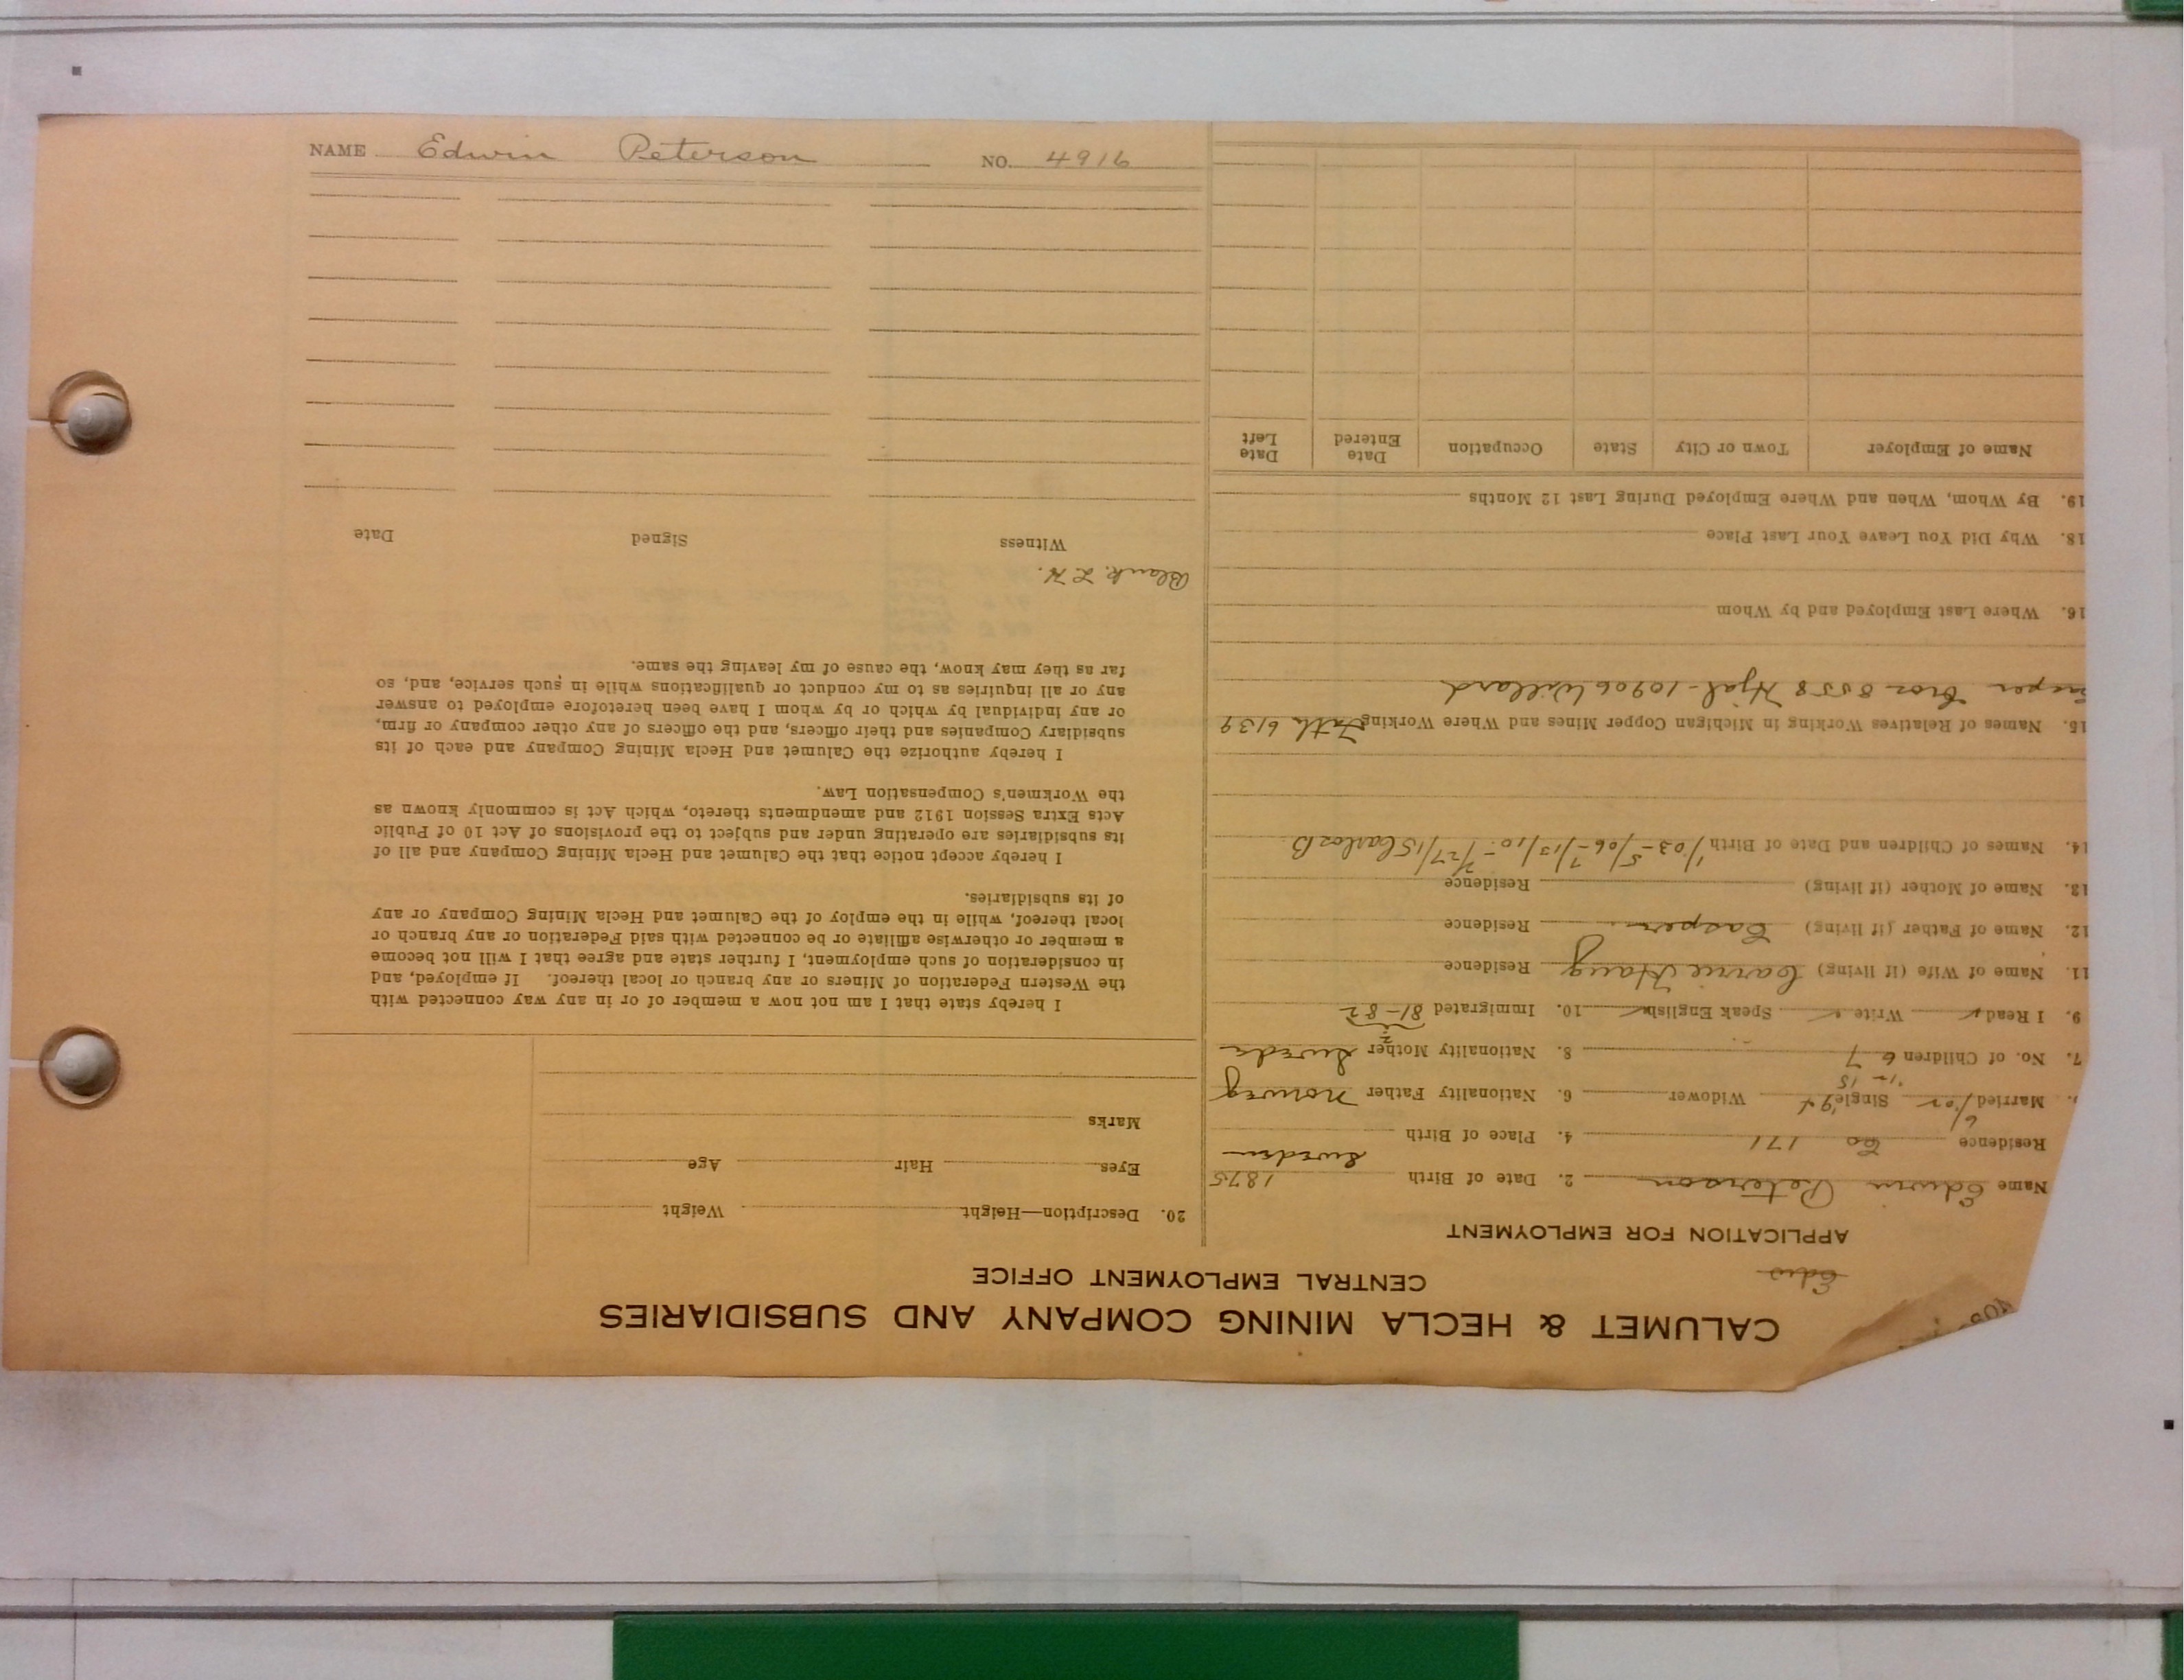 NAME Edwin Peterson NO. 4916
CALUMET & HECLA MINING COMPANY AND SUBSIDIARIES
CENTRAL EMPLOYMENT OFFICE
APPLICATION FOR EMPLOYMENT
Name Edwin Peterson 2. Date of Birth 1875
Residence Co 171 4. Place of Birth Sweden
Married Single Widower 6. Nationality Father Norweg
7. No. of Children 6 7 8. Nationality Mother Swede
9. I Read Write Speak English 10. Immigrated 81-82
11. Name of Wife (if living) Carrie Haug Residence
12. Name of Father (if living) Casper Residence
13. Name of Mother (if living) Residence
14. Names of Children and Date of Birth 1/03-5/06-7/13/10-2/27/15 Carlos B
15. Names of Relatives Working in Michigan Copper Mines and Where Working Fath 6139
Bros 8558 Hjal-10906 Willard
16. Where Last Employed and by Whom
18. Why Did You Leave Your Last Place
19. By Whom, When and Where Employed During Last 12 Months
Name of Employer Town or City State Occupation Date Entered Date Left
20. Description—Height Weight
Eyes Hair Age
Marks
I hereby state that I am not now a member of or in any way connected with
the Western Federation of Miners or any branch or local thereof. If employed, and
in consideration of such employment, I further state and agree that I will not become
a member or otherwise affiliate or be connected with said Federation or any branch or
local thereof, while in the employ of the Calumet and Hecla Mining Company or any
of its subsidiaries.
I hereby accept notice that the Calumet and Hecla Mining Company and all of
its subsidiaries are operating under and subject to the provisions of Act 10 of Public
Acts Extra Session 1912 and amendments thereto, which Act is commonly known as
the Workmen's Compensation Law.
I hereby authorize the Calumet and Hecla Mining Company and each of its
subsidiary Companies and their officers, and the officers of any other company or firm,
or any individual by which or by whom I have been heretofore employed to answer
any or all inquiries as to my conduct or qualifications while in such service, and, so
far as they may know, the cause of my leaving the same.
Blank. L H.
Witness Signed Date